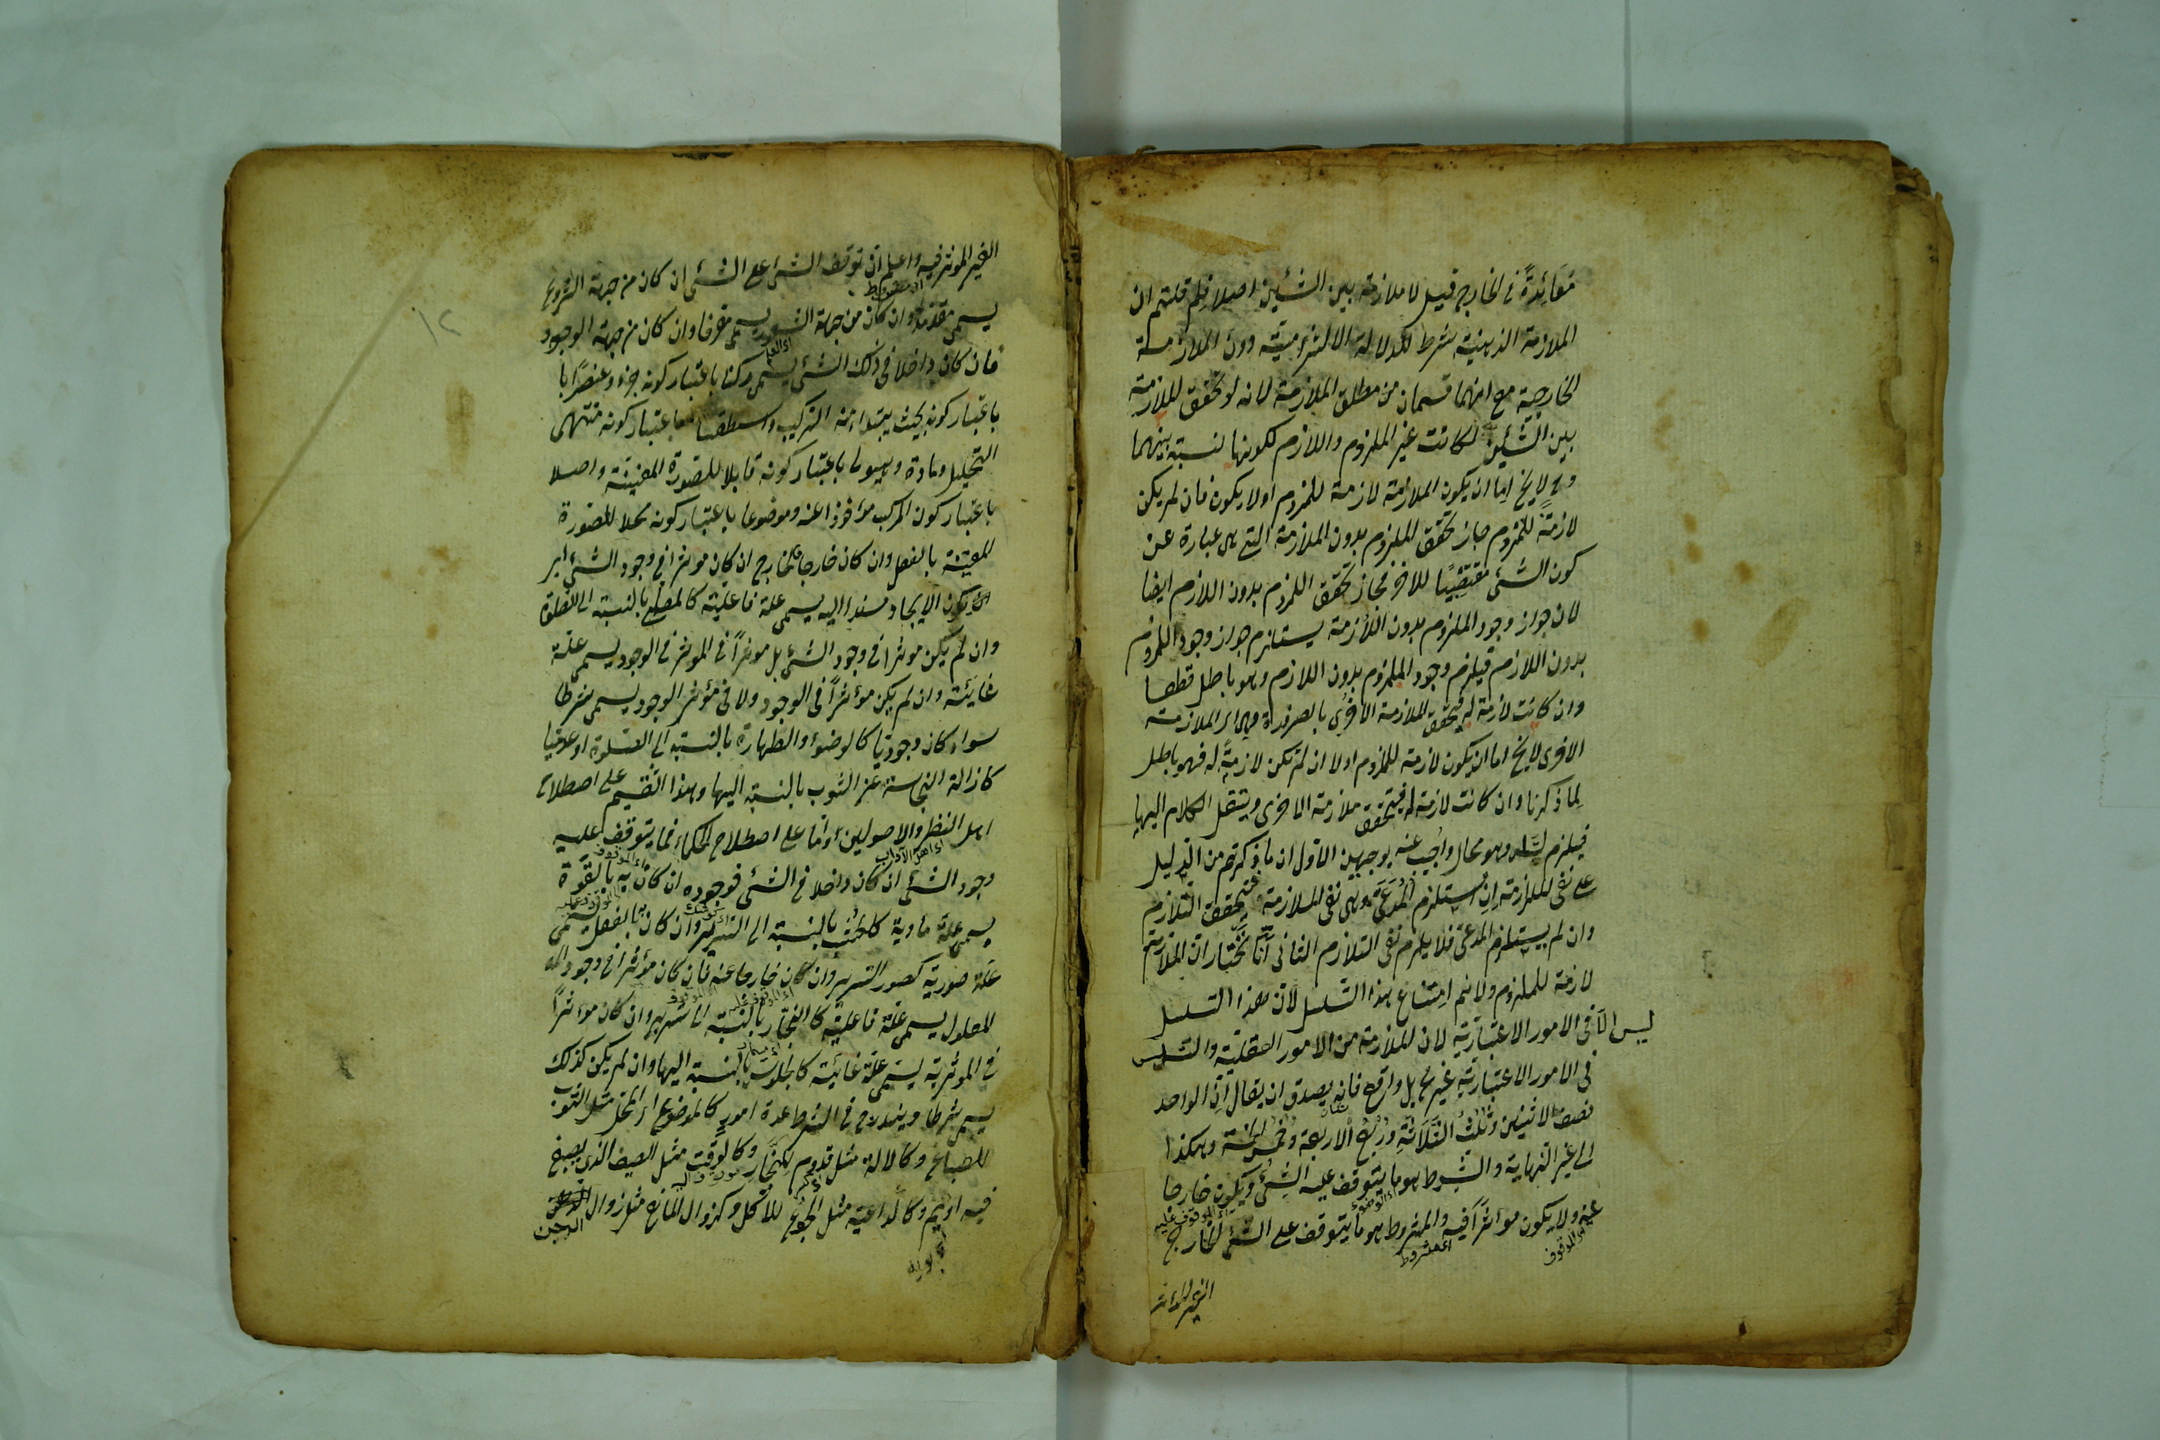 معاندة في الخارج قيل لا ملازمة بين الشيئين اصلا فلم قلتم ان
الملازمة الذهنية شرط للدلالة الالتزامية دون الملازمة
الخارجية مع انهما قسمان من مطلق الملازمة لانه لو تحقق الملازمة
بين الشيئين لكانت غير الملزوم واللازم لكونها نسبة بينهما
وح لا يخ اما ان يكون الملازمة لازمة للملزوم او لا يكون فان لم يكن
لازمة للملزوم جاز تحقق الملزوم بدون الملازمة التي هي عبارة عن
كون الشئ مقتضيا للاخر فجاز تحقق الملزوم بدون اللازم ايضا
لان جواز وجود الملزوم بدون الملازمة يستلزم جواز وجود الملزوم
بدون اللازم فيلزم وجود الملزوم بدون اللازم وهو باطل قطعا
وان كانت لازمة له فيتحقق الملازمة الاخرى بالضرورة وهى اى الملازمة
الاخرى لا يخ اما ان يكون لازمة للملزوم او لا ان لم تكن لازمة له فهو باطل
لما ذكرنا وان كانت لازمة له فيتحقق ملازمة الاخرى وينتقل الكلام اليها
فيلزم التسلسل وهو محال واجيب عنه بوجهين الاول ان ما ذكرتم من الدليل
على نفى الملازمة ان استلزم المدعى وهى نفى الملازمة فيتحقق التلازم
وان لم يستلزم المدعى فلا يلزم نفى التلازم الثانى انا نختار ان الملازمة
لازمة للملزوم ولا نم امتناع هذا التسلسل لان هذا التسلسل
ليس الا فى الامور الاعتبارية لان الملازمة من الامور العقلية والتسلسل
فى الامور الاعتبارية غير مح بل واقع فانه يصدق ان يقال ان الواحد
نصف الاثنين وثلث الثلاثة وربع الاربعة وخمس الخمسة وهكذا
الى غير النهاية والشرط هو ما يتوقف عليه الشئ ويكون خارجا
عنه ولا يكون مؤثرا فيه والمشروط هو ما يتوقف على الشئ الخارج
اى الموقوف
اى مشروط
اى الموقوف عليه
الغير المؤثر
١٢
الغير المؤثر فيه واعلم ان توقف الشئ على الشئ ان كان من جهة الشروع
يسمى مقدمة وان كان من جهة الشعور يسمى معرفا وان كان من جهة الوجود
فان كان داخلا فى ذلك الشئ يسمى ركنا باعتبار كونه جزء وعنصرا با
باعتبار كونه بحيث يبتداء منه التركيب واسطقسا باعتبار كونه منتهى
التحليل ومادة وهيولى باعتبار كونه قابلا للصورة المعينة واصلا
باعتبار كون المركب مأخوذا عنه وموضوعا باعتبار كونه محلا للصورة
المعينة بالفعل وان كان خارجا فالخارج ان كان موثرا فى وجود الشئ اى
يكون الايجاد مسندا اليه يسمى علة فاعلية كالمصلى بالنسبة الى الصلوة
وان لم يكن موثرا فى وجود الشئ بل موثرا فى الموثر فى الوجود يسمى علة
غائية وان لم يكن مؤثرا فى الوجود ولا فى مؤثر الوجود يسمى شرطا
سواء كان وجوديا كالوضوء والطهارة بالنسبة الى الصلوة او عدميا
كازالة النجاسة عن الثوب بالنسبة اليها وهذا التقسيم على اصطلاح
اهل النظر والاصوليين واما على اصطلاح الحكماء فما يتوقف عليه
اى اهل الآداب
وجود الشئ ان كان داخلا فى الشئ فوجوده ان كان به بالقوة
يسمى علة مادية كالخشب بالنسبة الى السرير وان كان بالفعل يسمى
علة صورية كصور السرير وان كان خارجا عنه فان كان مؤثرا فى وجود
المعلول يسمى علة فاعلية كالنجار بالنسبة الى السرير وان كان مؤثرا
فى المؤثرية يسمى علة غائية كالجلوس بالنسبة اليها وان لم يكن كذلك
يسمى شرطا ويندرج فى الشرط عدة امور كالموضوع اى المحل مثل الثوب
للصباغ وكالالة مثل قدوم للنجار وكالوقت مثل الصيف الذى يصبغ
فيه اديم وكالداعية مثل الجوع للاكل وكزوال المانع مثل زوال
الدجن